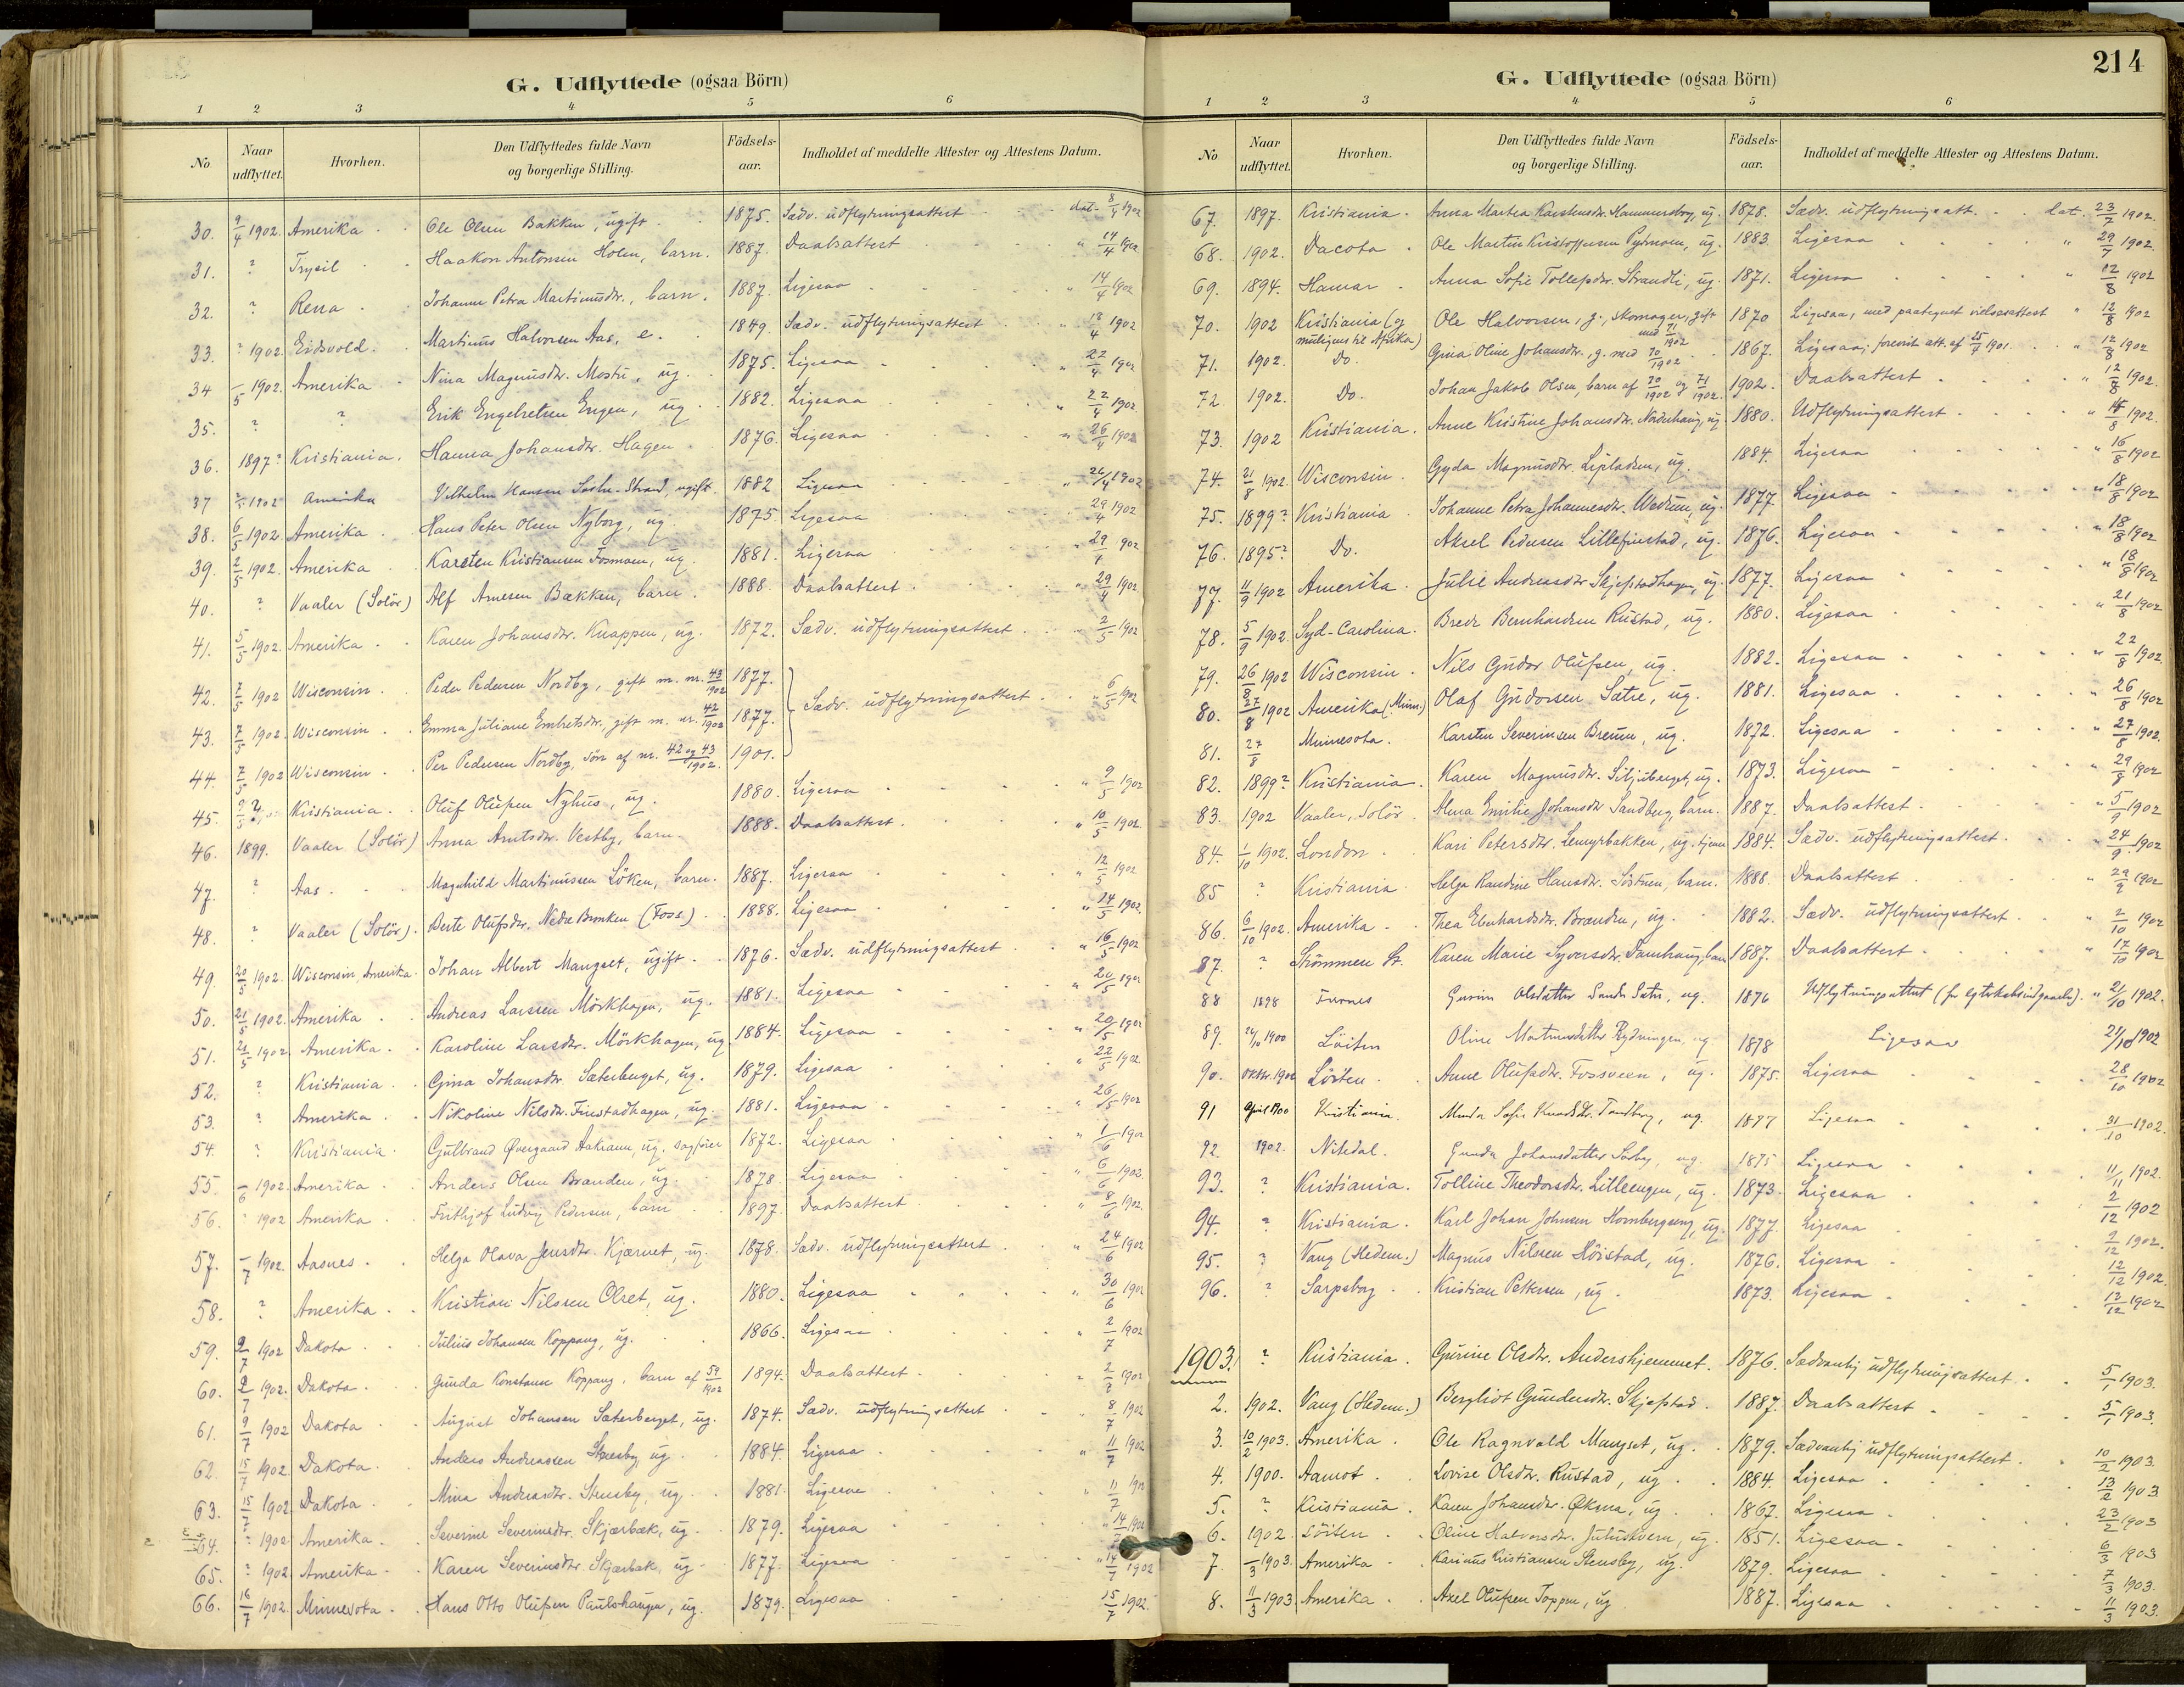 G. Udflyttede (ogsaa Börn)
1 2 3 4 5 6
No Naar udflyttet. Hvorhen. Den Udflyttedes fulde Navn og borgerlige Stilling. Födsels-aar. Indholdet af meddelte Attester og Attestens Datum.
30. 9/4 1902. Amerika Ole Olsen Bakken, ugift 1875. Sædv. udflytningsattest dat. 8/4 1902
31. ? Trysil Haakon Antonsen Holen, barn. 1887. Daabsattest " 14/4 1902
32. ? Rena Johanne Petra Martinusdtr., barn. 1887. Ligesaa " 14/4 1902
33. ? 1902. Eidsvold. Martinus Halvorsen Aas, e. 1849. Sædv. udflytningsattest " 18/4 1902
34 -/5 1902. Amerika Nina Magnusdtr. Mostu, ug. 1875. Ligesaa " 22/4 1902
35. ? ? Erik Engebretsen Engen, ug. 1882. Ligesaa " 22/4 1902.
36. 1897? Kristiania. Hanna Johansdtr. Hagen 1876. Ligesaa " 26/4 1902
37 1902 Amerika Vilhelm Hansen Strand, ugift. 1882 Ligesaa " 26/4 1902
38. 6/5 1902. Amerika Hans Peter Olsen Nyborg, ug. 1875 Ligesaa 29/4 1902
39. 2/5 1902. Amerika Karsten Kristiansen Fosmoen, ug. 1881. Ligesaa " 29/4 902
40. ? Vaaler (Solör) Alf Arnesen Bakken, barn. 1888. Daabsattest " 29/4 1902
41. 5/5 1902. Amerika Karen Johansdtr. Knappen, ug. 1872. Sædv. udflytningsattest " 2/5 1902
42. 7/5 1902 Wisconsin Peder Pedersen Nordby, gift m. nr. 43/1902 1877.
43. 7/5 1902. Wisconsin Emma Juliane Embretsdtr., gift m. nr. 42/1902 1877. Sædv. udflytningsattest " 6/5 1902
44. 7/5 1902 Wisconsin Per Pedersen Nordby, sön af nr. 42 og 43/1902. 1901.
45. Kristiania. Oluf Olufsen Nyhus, ug. 1880. Ligesaa " 9/5 1902
46. 1899. Vaaler (Solör) Anna Arntsdtr. Vestby, barn. 1888. Daabsattest " 10/5 1902.
47. ? Aas. Magnhild Martinussen Löken, barn. 1887. Ligesaa " 12/5 1902
48. ? Vaaler (Solör). Berte Olufsdtr. Nedre Brenken (Foss) 1888. Ligesaa " 14/5 1902.
49. 20/5 1902. Wisconsin, Amerika. Johan Albert Mangset, ugift. 1876. Sædv. udflytningsattest " 16/5 1902
50. 21/5 1902. Amerika Andreas Larssen Mörkhagen, ug. 1881. Ligesaa " 20/5 1902
51. 21/5 1902. Amerika. Karoline Larsdtr. Mörkhagen, ug. 1884. Ligesaa " 20/5 1902
52. ? Kristiania. Gina Johansdtr. Sæterberget, ug. 1879. Ligesaa " 22/5 1902.
53. ? Amerika. Nikoline Nilsdtr. Finstadhagen, ug. 1881. Ligesaa " 26/5 1902
54. ? Kristiania. Gulbrand Øvergaard Aakrann, ug. sagfører 1872. Ligesaa " 1/6 1902
55. -/6 1902. Amerika Anders Olsen Branden, ug. 1878. Ligesaa " 6/6 1902.
56. ? 1902 Amerika. Frithjof Ludvig Pedersen, barn 1897. Daabsattest " 8/6 1902.
57. -/7 1902. Aasnes. Helga Olava Jensdtr. Kjærnet, ug. 1878. Sædv. udflytningsattest " 24/6 1902
58. ? Amerika. Kristian Nilssen Olset, ug. 1880. Ligesaa " 30/6 1902
59. 9/7 1902 Dakota Julius Johansen Koppang, ug. 1866. Ligesaa " 2/7 1902
60. 9/7 1902. Dakota. Gunda Konstanse Koppang, barn af 59/1902 1894. Daabsattest " 2/7 1902
61. 9/7 1902 Dakota August Johansen Sæterberget, ug. 1874. Sædv. udflytningsattest " 8/7 1902
62. 15/7 1902 Dakota. Anders Andreassen Stensby, ug. 1884. Ligesaa " 11/7 1902
63. 15/7 1902 Dakota. Mina Andreasdtr. Stensby, ug. 1881. Ligesaa " 11/7 1902
64. ? 1902 Amerika. Severine Severinsdtr. Skjærbæk, ug. 1879. Ligesaa " 14/7 1902
65. ? 1902 Amerika. Karen Severinsdtr. Skjærbæk, ug 1877. Ligesaa " 14/7 1902
66. 16/7 1902. Minnesota. Hans Otto Olufsen Paulshaugen, ug. 1879. Ligesaa 15/7 1902.
214
G. Udflyttede (ogsaa Börn)
1 2 3 4 5 6
No Naar udflyttet. Hvorhen. Den Udflyttedes fulde Navn og borgerlige Stilling. Födsels-aar. Indholdet af meddelte Attester og Attestens Datum.
67. 1897. Kristiania. Anna Martea Karstensdtr. Hammersbog, ug. 1878. Sædv. udflytningsatt. dat. 23/7 1902.
68. 1902. Dacota Ole Martin Kristoffersen, ug. 1883. Ligesaa " 29/7 1902.
69. 1894. Hamar Anna Sofie Tollefsdtr. Strandli, ug. 1871. Ligesaa " 12/8 1902
70. 1902 Kristiania (og muligens til Afrika) Ole Halvorsen, g., skomager, gift med 71/1902 1870 Ligesaa, med paategnet vielsesattest " 12/8 1902
71. 1902. Do. Gina Oline Johansdtr., g. med 70/1902 1867. Ligesaa; forevist att. af 25/7 1901. " 12/8 1902
72 1902. Do. Johan Jakob Olsen, barn af 70/1902 og 71/1902. 1902. Daabsattest " 12/8 1902.
73. 1902 Kristiania. Anne Kristine Johansdtr. Nordenhaug, ug. 1880. Udflytningsattest " 14/8 1902.
74. 21/8 1902. Wisconsin. Gyda Magnusdtr., ug. 1884. Ligesaa " 16/8 1902
75. 1899? Kristiania Johanne Petra Johannesdtr. Wedum, ug. 1877. Ligesaa " 18/8 1902
76. 1895? Do. Aksel Pedersen Lillefinstad, ug. 1876. Ligesaa " 18/8 1902
77. 11/9 1902 Amerika. Julie Andreasdtr. Skjefstadhagen, ug. 1877. Ligesaa " 18/8 1902
78. 5/9 1902. Syd-Carolina. Brede Bernhardsen Rustad, ug. 1880. Ligesaa " 21/8 1902
79. 26/8 1902 Wisconsin. Nils Gudor Olufsen, ug. 1882. Ligesaa " 22/8 1902.
80. 27/8 1902 Amerika (Minn.) Olaf Gudorsen Sætre, ug. 1881. Ligesaa " 26/8 1902
81. 27/8 Minnesota. Karsten Severinsen Brenna, ug. 1872. Ligesaa " 27/8 1902.
82. 1899? Kristiania. Karen Magnusdtr. Siljuberget, ug. 1873. Ligesaa " 29/8 1902
83. 1902 Vaaler, Solör. Alma Emilie Johansdtr. Sandberg, barn. 1887. Daabsattest " 5/9 1902
84. 1/10 1902. London Kari Petersdtr. Lemyrbakken, ug. tjener 1884. Sædv. udflytningsattest 24/9 1902
85 ? Kristiania Helga Randine Hansdtr. Söstuen, barn. 1888. Daabsattest " 29/9 1902
86. 6/10 1902. Amerika. Thea Eberhardsdtr. Brænden, ug. 1882. Sædv. udflytningsattest " 2/10 1902
87. ? Strömmen St. Karen Marie Syversdtr. Damhaug, barn 1887. Daabsattest " 17/10 1902
88 1898 Furnes Gurine Olsdatter Søndre Sætre, ug. 1876 Udflytningsattest (for ægteskabs indgaaelse). " 21/10 1902.
89. 24/10 1900 Löiten Oline Martinusdatter Rydningen, ug 1878 Ligesaa 21/10 1902
90. Oktbr. 1902 Löiten Anne Olufsdtr. Fossveen, ug. 1875. Ligesaa 28/10 1902
91 April 1900 Kristiania. Sofie Knudsdtr. Tandberg, ug. 1877 Ligesaa 31/10 1902.
92 1902. Nitedal. Gunda Johansdatter, ug. 1875 Ligesaa 11/11 1902.
93. ? Kristiania. Tolline Theodorsdtr. Lilleengen, ug. 1873. Ligesaa 2/12 1902
94. ? Kristiania. Karl Johan Johnsen Hornbergseng, ug. 1877. Ligesaa 9/12 1902.
95. ? Vang (Hedem.) Magnus Nilsen Höistad, ug. 1876. Ligesaa 12/12 1902.
96. ? Sarpsborg Kristian Pettersen, ug. 1873. Ligesaa 13/12 1902
1903. ? Kristiania. Gurine Olsdtr. Andershjemmet. 1876. Sædvanlig udflytningsattest. 5/1 1903.
2. 1902. Vang (Hedem.) Bergliot Gundersdtr. Skjefstad. 1887. Daabsattest 5/1 1903.
3. 10/2 1903. Amerika. Ole Ragnvald Mangset, ug. 1879. Sædvanlig udflytningsattest. 10/2 1903.
4. 1900. Aamot. Lovise Olsdtr. Rustad, ug 1884. Ligesaa 13/2 1903
5. ? Kristiania Karen Johansdtr. Økma, ug. 1867. Ligesaa 23/2 1903
6. 1902. Löiten. Oline Halvorsdtr. Julustkvern, ug. 1851. Ligesaa 6/3 1903
7 -/3 1903. Amerika Karinus Kristiansen Stensby, ug. 1879. Ligesaa 7/3 1903.
8. 11/3 1903. Amerika Axel Olufsen Toppen, ug 1887. Ligesaa 11/3 1903.